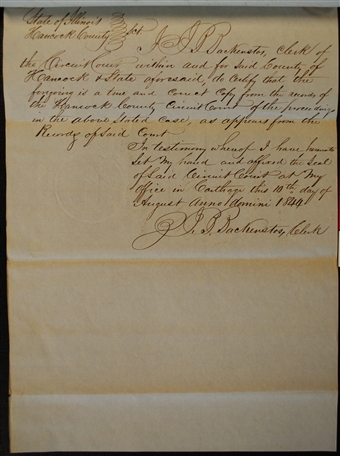 State of Illinois
Hancock County } Sct
I J. B. Backenstos, Clerk of
the Circuit Court within and for said County of
Hancock & State aforesaid, do Certify that the
foregoing is a true and Correct Copy from the records of
the Hancock County Circuit Court of the proceedings
in the above Stated Case, as appears from the
Records of Said Court
In testimony whereof I have hereunto
Set My hand and affixed the Seal
of Said Circuit Court at My
Office in Carthage this 10th day of
August Anno domini 1844
J. B. Backenstos, Clerk